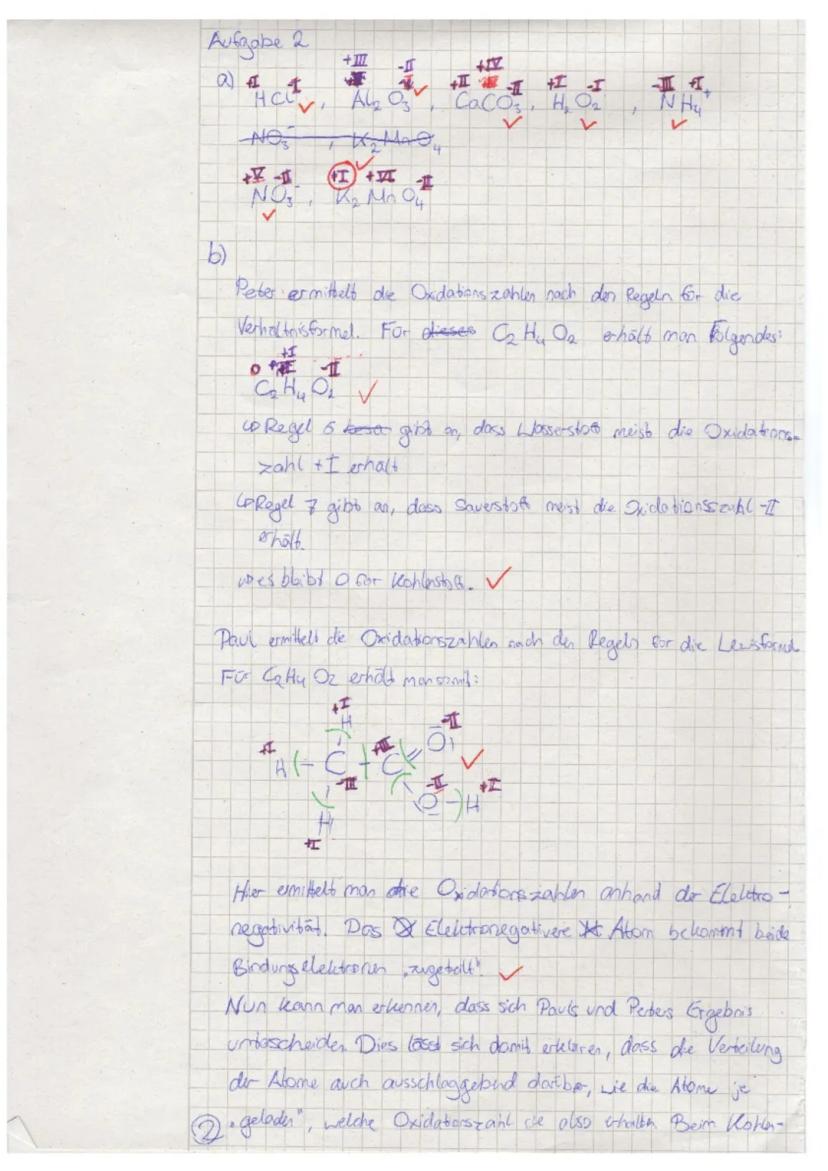 Aufgabe 2
+III -II +IV
a) +I -I +II -II +I -I -III +I
HCl, Al2O3, CaCO3, H2O2, NH4+
NO3-, K2MnO4
+V -II +I +VI -II
NO3-, K2MnO4
b)
Peter ermittelt die Oxidationszahlen nach den Regeln für die
Verhältnisformel. Für dieses C2H4O2 erhält man Folgendes:
+I
0 -II
C2H4O2
↳ Regel 6 gibt an, dass Wasserstoff meist die Oxidations-
zahl +I erhält
↳ Regel 7 gibt an, dass Sauerstoff meist die Oxidationsszahl -II
erhält.
↳ es bleibt 0 für Kohlenstoff.
Paul ermittelt die Oxidationszahlen nach den Regeln für die Lewisformel
Für C2H4O2 erhält man somit:
+I
H -II
+I +III O
H - C - C
-III -II +I
O - H
H
+I
Hier ermittelt man die Oxidationszahlen anhand der Elektro-
negativität. Das Elektronegativere Atom bekommt beide
Bindungselektronen „zugeteilt“.
Nun kann man erkennen, dass sich Pauls und Peters Ergebnis
unterscheiden. Dies lässt sich damit erklären, dass die Verteilung
der Atome auch ausschlaggebend darüber, wie die Atome je
② „geladen“, welche Oxidationszahl sie also erhalten. Beim Kohlen-